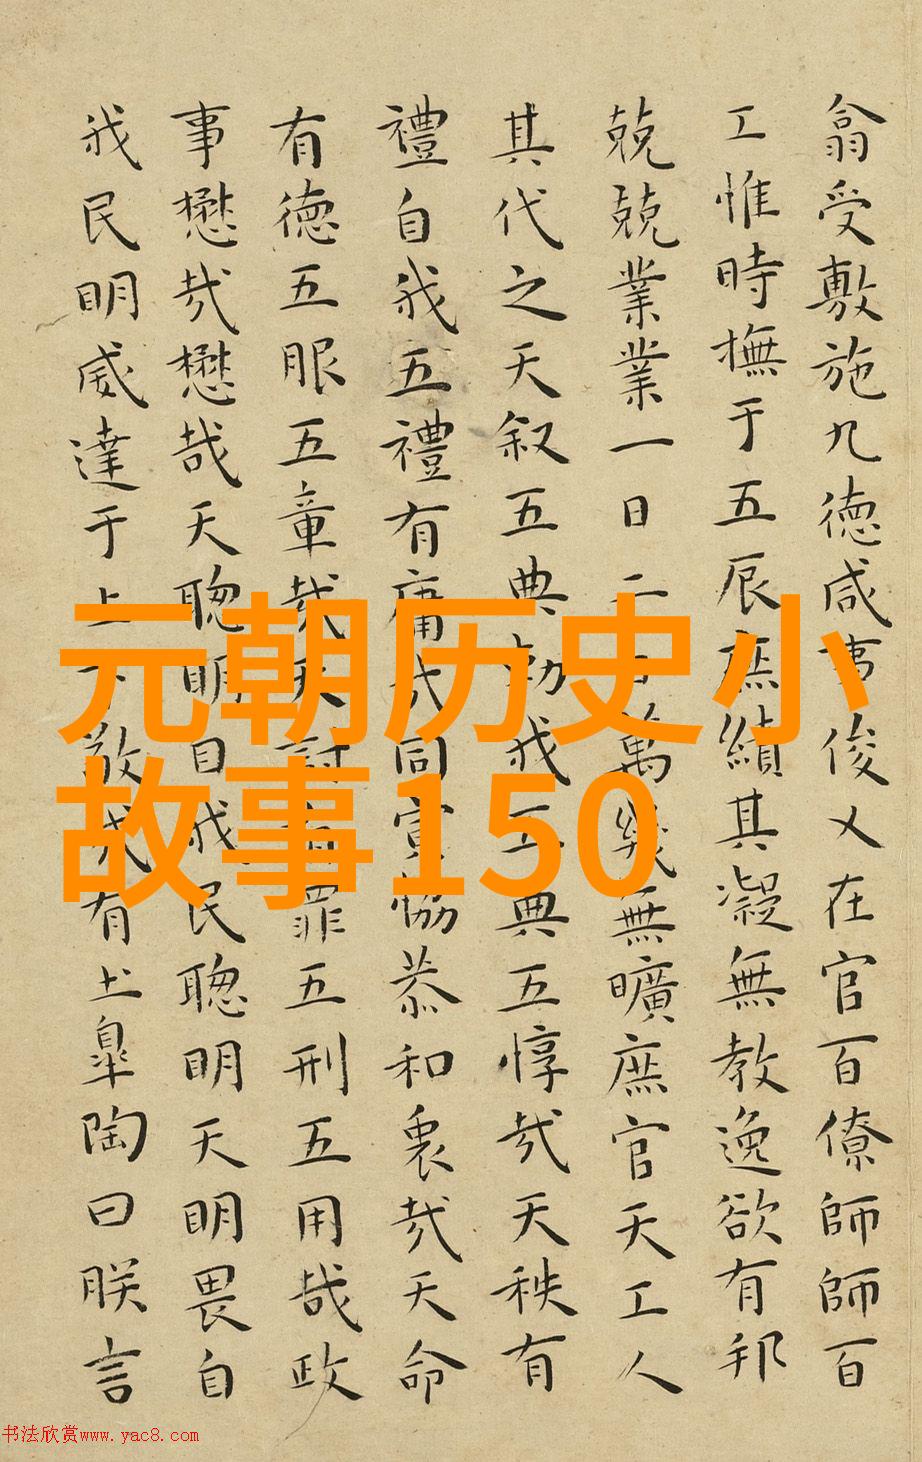 翕受敷施九德咸事俊乂在官百僚師師百
工惟時撫于五辰庶績其凝無教逸欲有邦
兢兢業業一日二日萬幾無曠庶官天工人
其代之天叙五典勑我五典五惇哉天秩有
禮自我五禮有庸哉同寅恊恭和衷哉天命
有德五服五章哉天討有罪五刑五用哉政
事懋哉懋哉天聰明自我民聰明天明畏自
我民明威達于上下敬哉有土皋陶曰朕言
元朝历史小
故事150
书法欣赏www.yac8.com